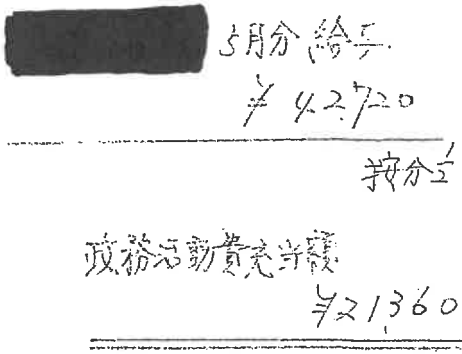 5月分給与
¥42,720
按分1/2
政務活動費充当額
¥21,360